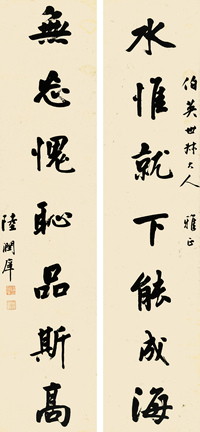 伯英世林大人 雅正
水惟就下能成海
無忝愧恥品斯高
陸潤庠